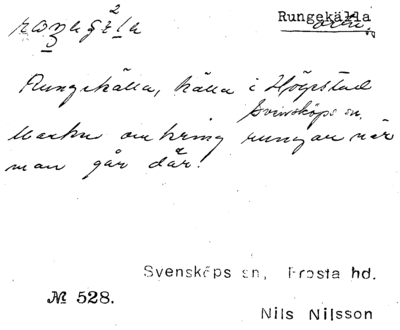 Rungekälla
Rungekälla, källa i Högestad
Svensköps sn.
Marken omkring rungar när
man går där.
Svensköps sn, Frosta hd.
№ 528.
Nils Nilsson